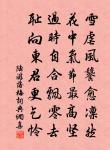 雪虐風饕愈凜然
花中氣節最高堅
過時自合飄零去
恥向東君更乞憐
陸游落梅詞典網集